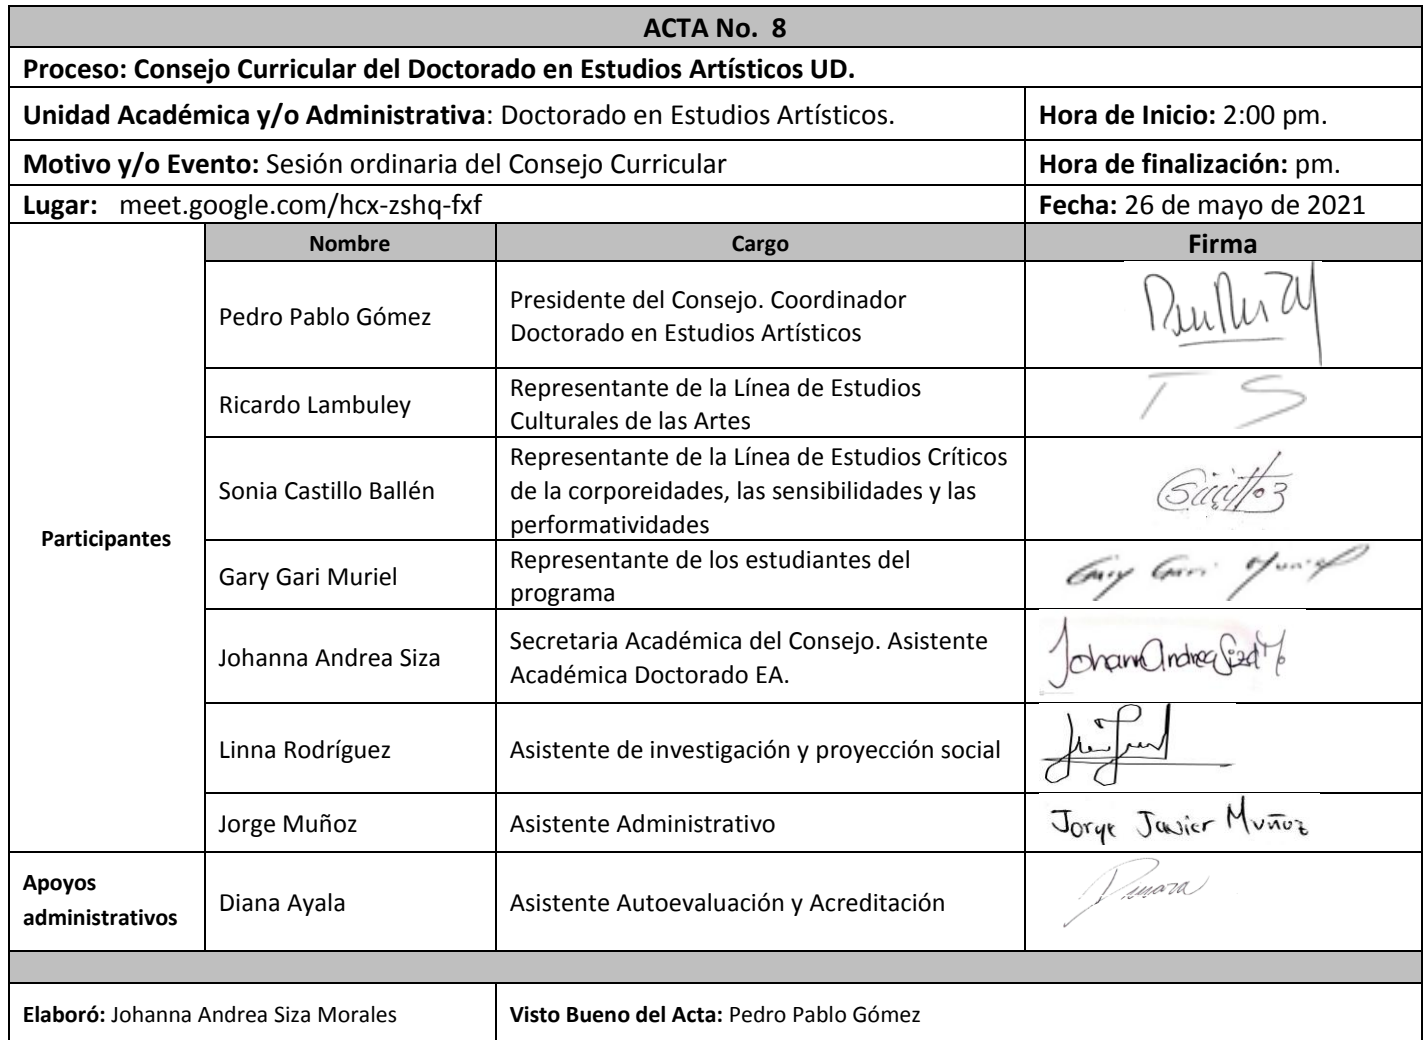 ACTA No. 8
Proceso: Consejo Curricular del Doctorado en Estudios Artísticos UD.
Unidad Académica y/o Administrativa: Doctorado en Estudios Artísticos.
Hora de Inicio: 2:00 pm.
Motivo y/o Evento: Sesión ordinaria del Consejo Curricular
Hora de finalización: pm.
Lugar: meet.google.com/hcx-zshq-fxf
Fecha: 26 de mayo de 2021
Participantes
Nombre
Cargo
Firma
Pedro Pablo Gómez
Presidente del Consejo. Coordinador
Doctorado en Estudios Artísticos
Ricardo Lambuley
Representante de la Línea de Estudios
Culturales de las Artes
T S
Sonia Castillo Ballén
Representante de la Línea de Estudios Críticos
de la corporeidades, las sensibilidades y las
performatividades
Gary Gari Muriel
Representante de los estudiantes del
programa
Gary Gari Muriel
Johanna Andrea Siza
Secretaria Académica del Consejo. Asistente
Académica Doctorado EA.
Johanna Andrea Siza Mo
Linna Rodríguez
Asistente de investigación y proyección social
Jorge Muñoz
Asistente Administrativo
Jorge Javier Muñoz
Apoyos
administrativos
Diana Ayala
Asistente Autoevaluación y Acreditación
Elaboró: Johanna Andrea Siza Morales
Visto Bueno del Acta: Pedro Pablo Gómez